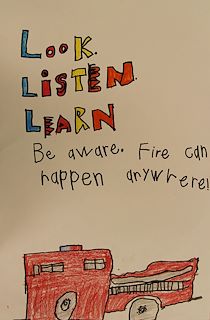 LOOK.
LISTEN.
LEARN
Be aware. Fire can
happen anywhere!